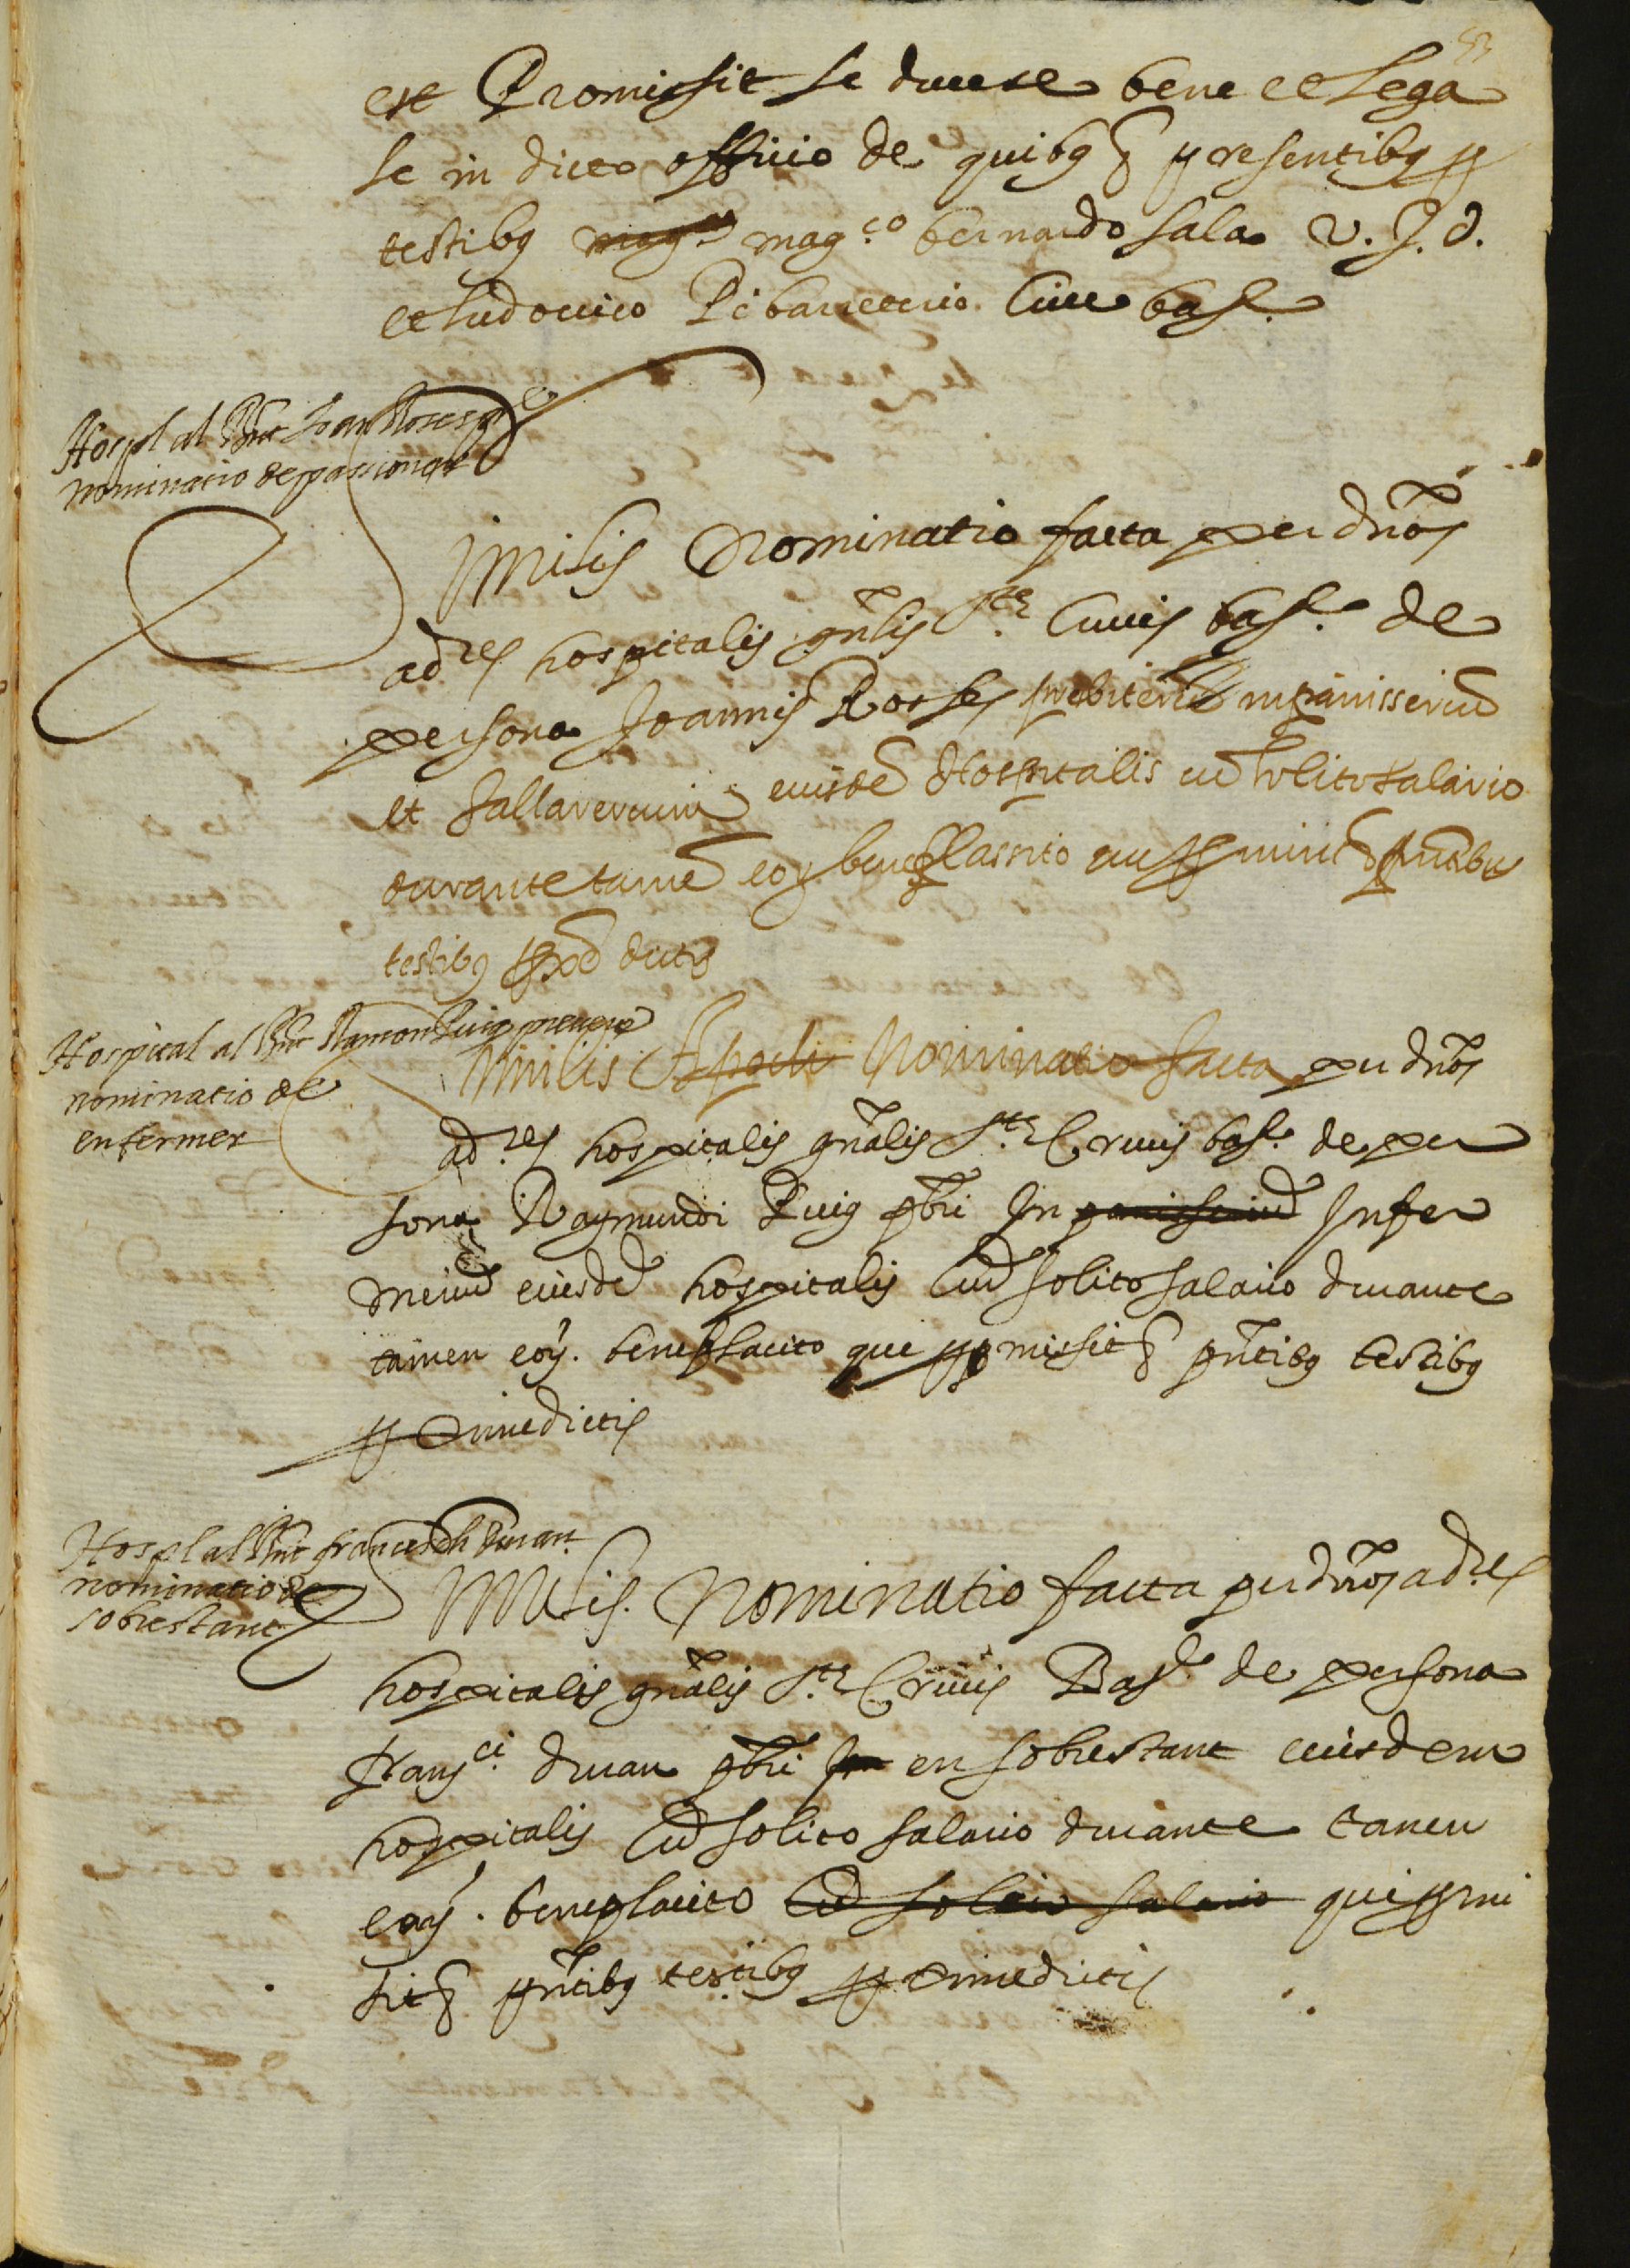 53
est Promissit se ducere bene et lega
se in dicto officio de quibg & presentibg p
testibg mag.co mag.co bernardo sala V. J. d.
et ludovico Ribarreterio Cive bas.e
Hospl al Rnt Joan Roses pre
nominatio de panicionar
Similis Nominatio facta per dños
ad.res hospitalis gñlis S.te Crucis bas.e de
persona Joannis Rosses prebiteri in panisseriũ
et sallarercium eiusdẽ Hospitalis cũ solito salario
durante tamẽ eoy beneplasito qui promisit & pñtibus
testibg pro dictis
Hospital al Rnt Ramon Puig prevere
nominatio de
enfermer
Similis Nominatio facta per dños
ad.res hospitalis gñalis S.te Crucis bas.e de per
sona Raymundi Puig pbri In panisseriũ Infer
meriũ eiusdẽ hospitalis Cũ solito salario durante
tamen eoy. beneplacito que promissit & pñtibg testibg
proxime dictis
Hospl al Rnt francesch duran
nominatio de
sobrestant
Similis. Nominatio facta per dños ad.res
hospitalis gñalis S.te Crucis Bas.e de persona
fran.ci duran pbri In en sobrestant eiusdem
hospitalis Cũ solito salario durante tamen
eoy. beneplacito Cũ solito salario qui promi
sit & pñtibg testibg proxime dictis